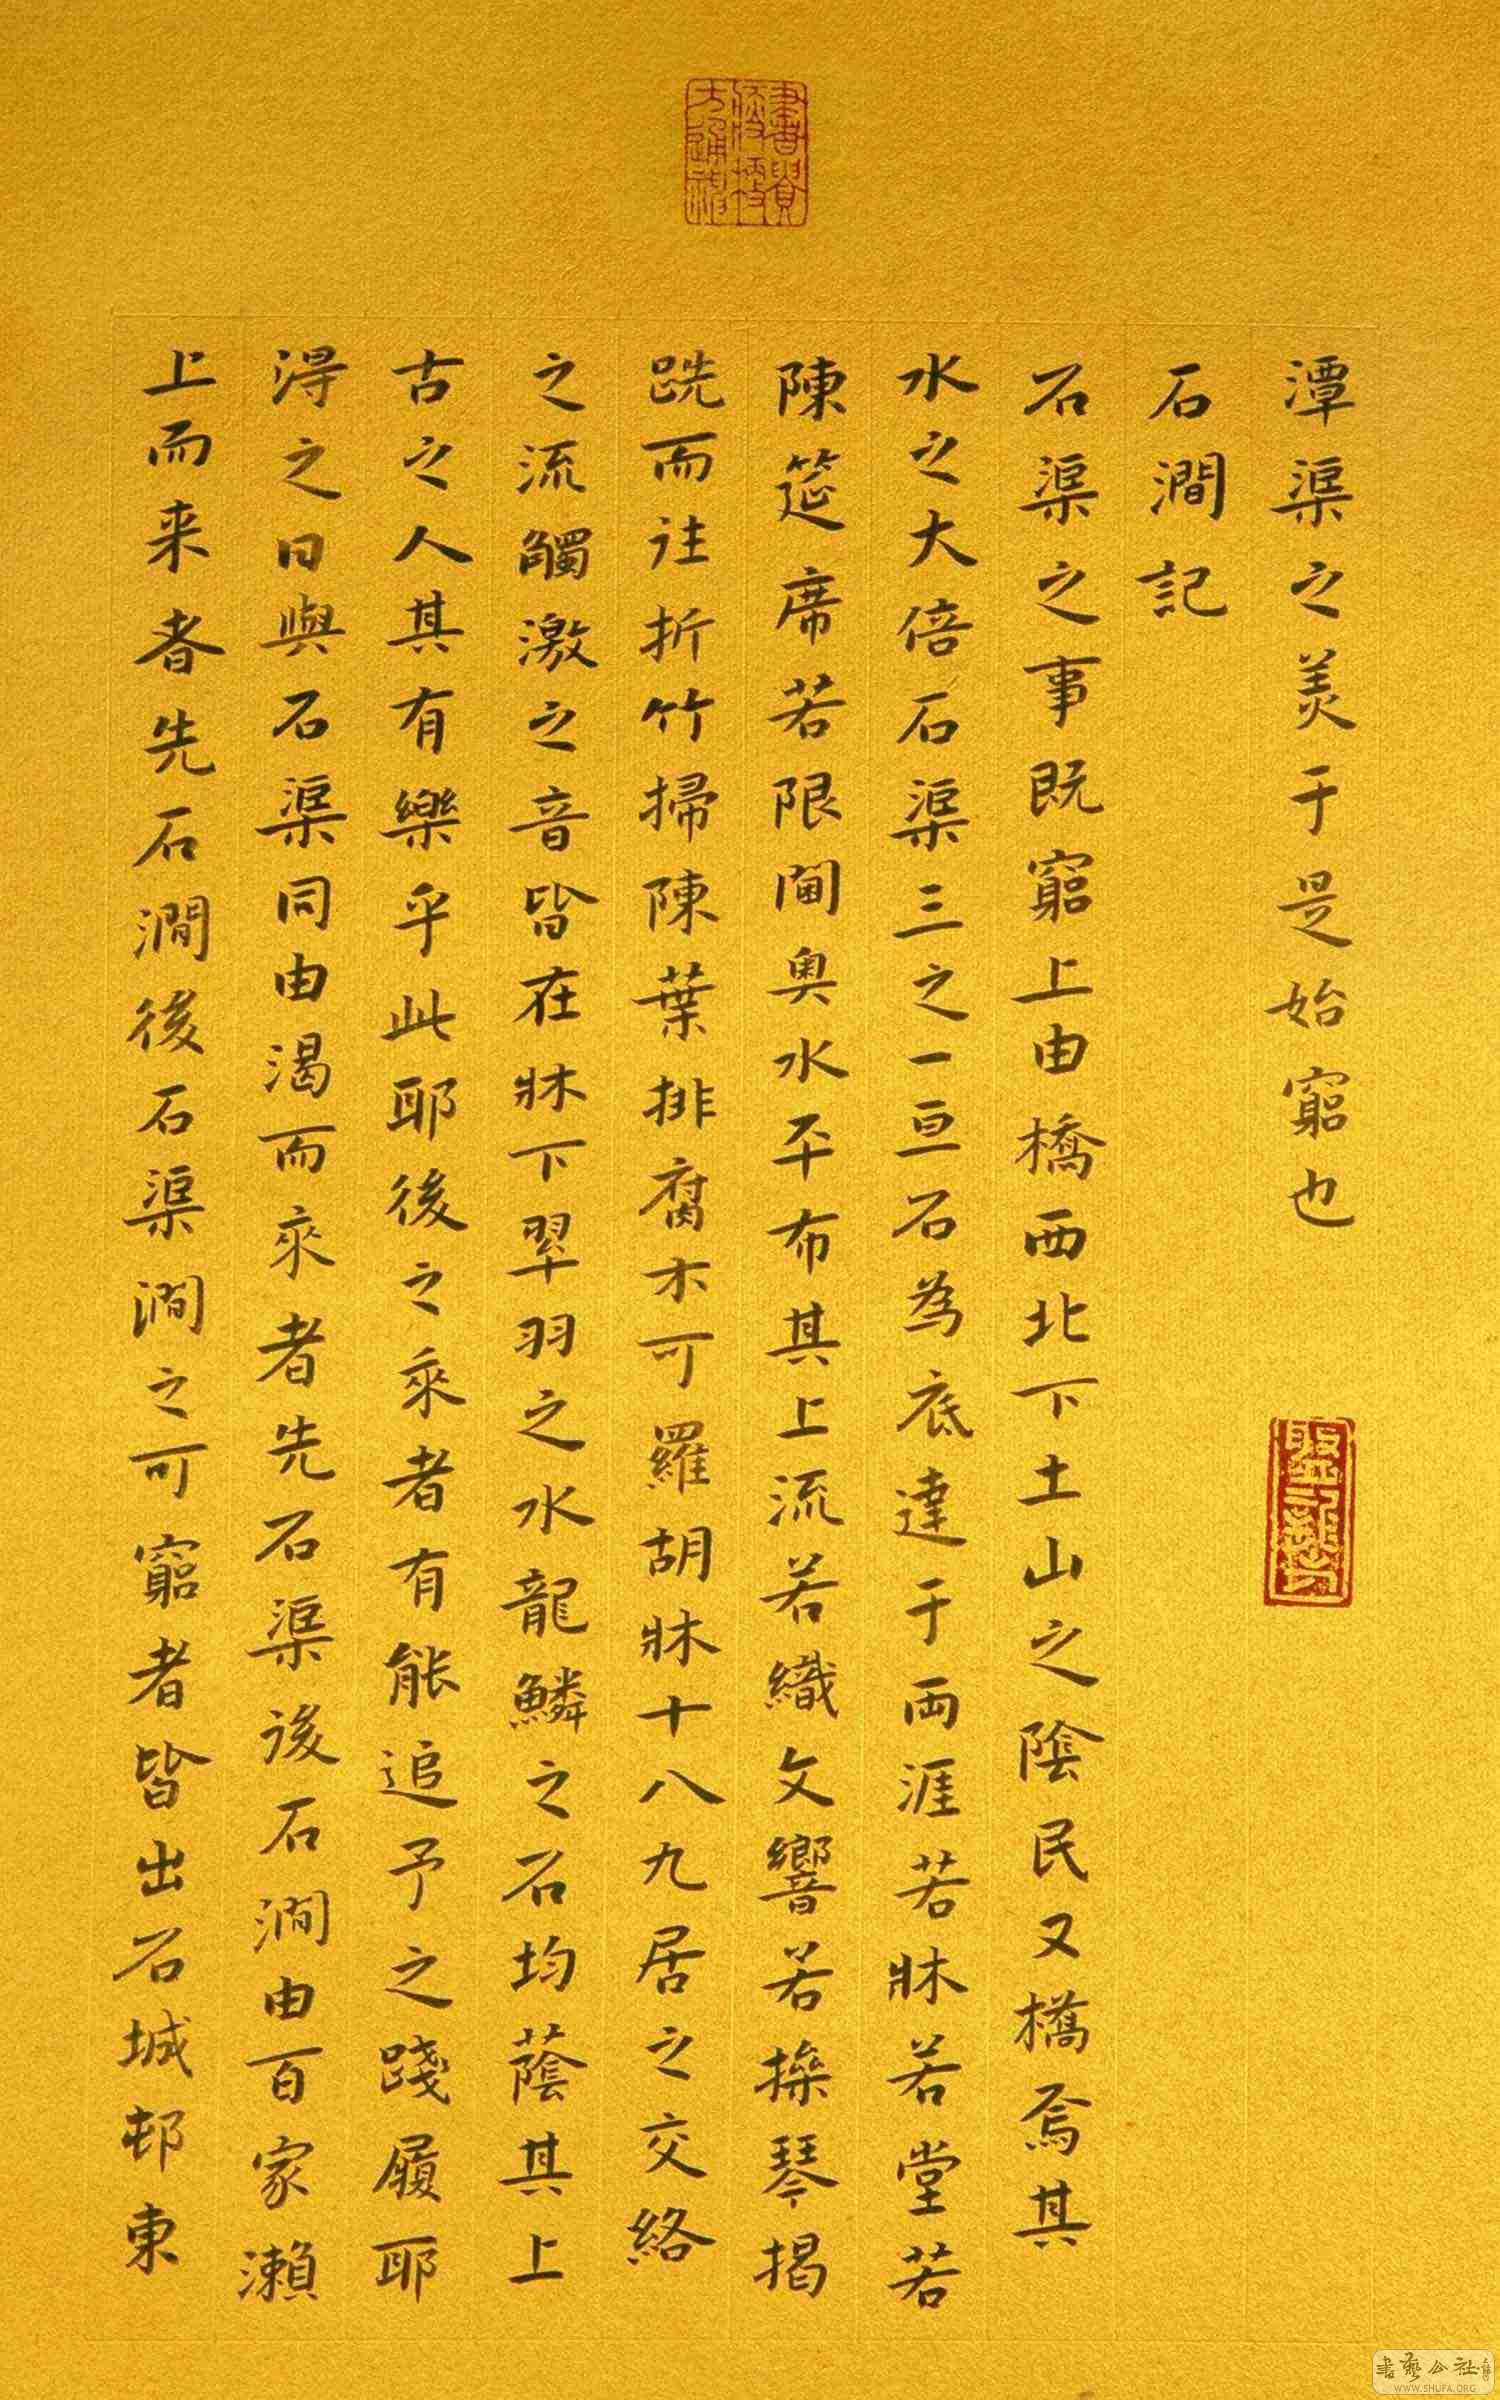 潭渠之美于是始窮也
石澗記
石渠之事既窮上由橋西北下土山之陰民又橋焉其
水之大倍石渠三之一亘石為底達于兩涯若牀若堂若
陳筵席若限閫奧水平布其上流若織文響若操琴揭
跣而往折竹掃陳葉排腐木可羅胡牀十八九居之交絡
之流觸激之音皆在牀下翠羽之水龍鱗之石均蔭其上
古之人其有樂乎此耶後之來者有能追予之踐履耶
得之日與石渠同由渴而來者先石渠後石澗由百家瀨
上而来者先石澗後石渠澗之可窮者皆出石城邨東
書藝公社
WWW.SHUFA.ORG